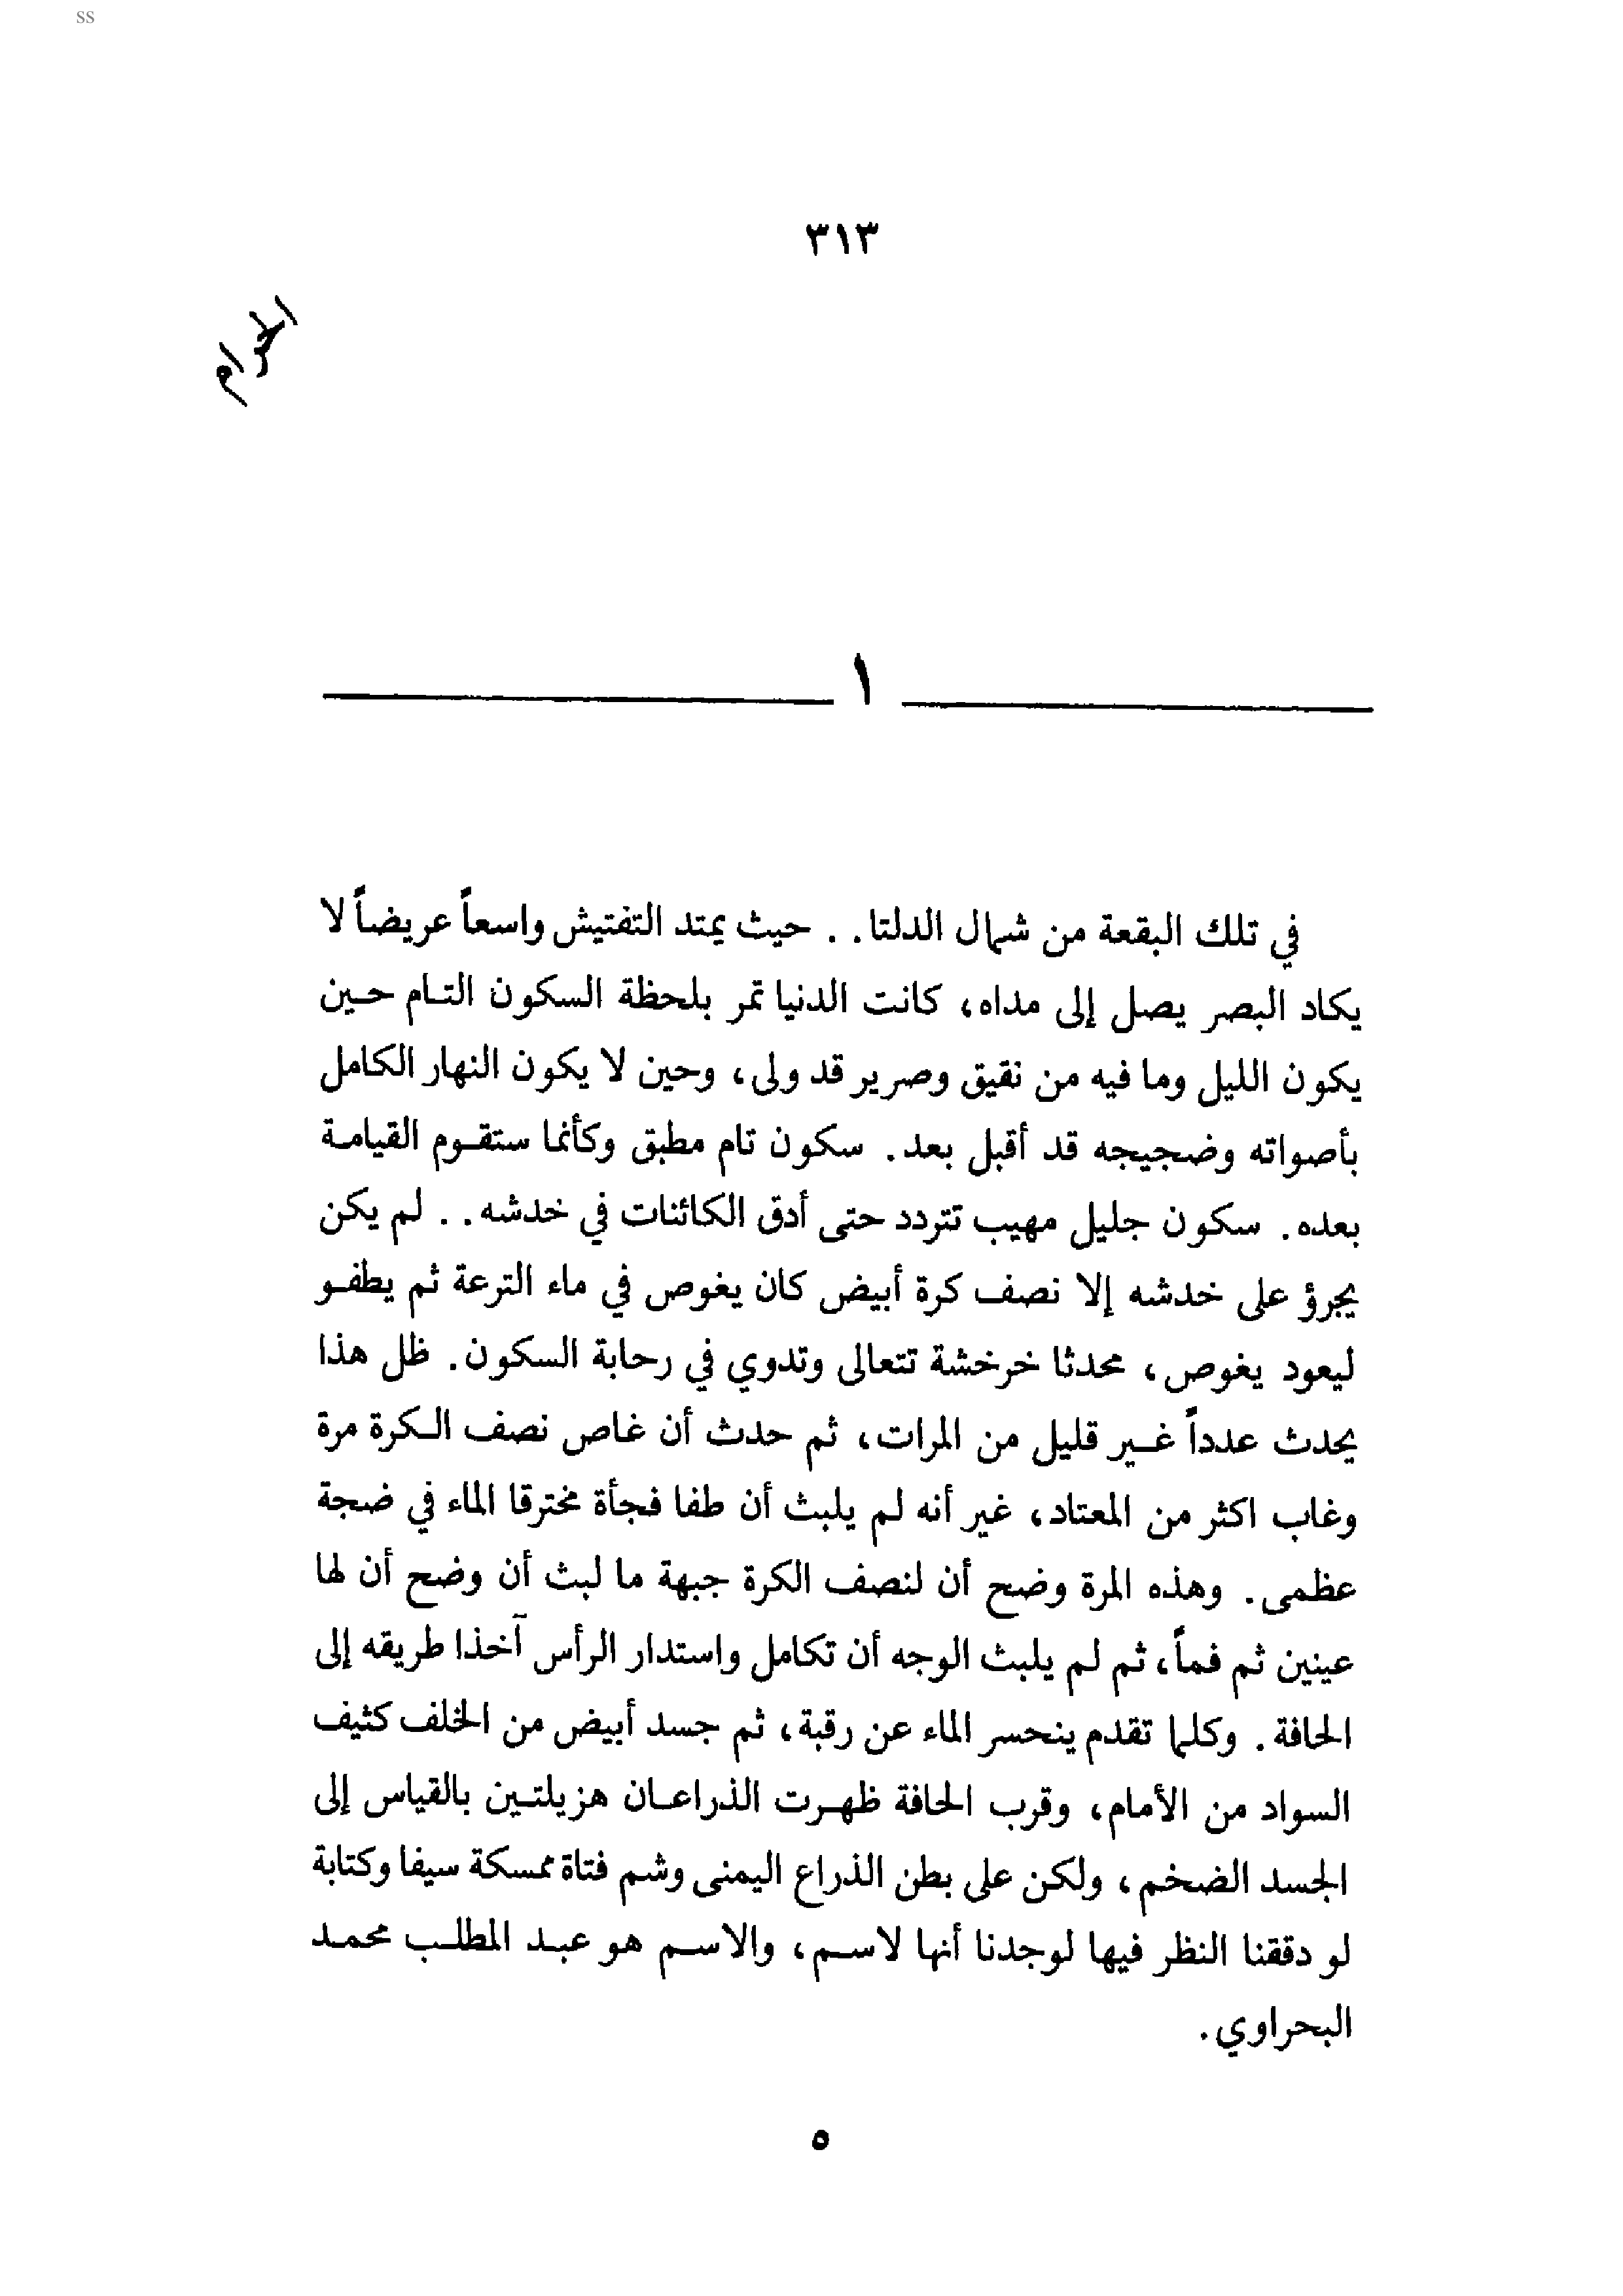 ss
٣١٣
الحرام
١
في تلك البقعة من شمال الدلتا . . حيث يمتد التفتيش واسعاً عريضاً لا
يكاد البصر يصل إلى مداه، كانت الدنيا تمر بلحظة السكون التام حين
يكون الليل وما فيه من نقيق وصرير قد ولى، وحين لا يكون النهار الكامل
بأصواته وضجيجه قد أقبل بعد. سكون تام مطبق وكأنما ستقوم القيامة
بعده. سكون جليل مهيب تتردد حتى أدق الكائنات في خدشه . . لم يكن
يجرؤ على خدشه إلا نصف كرة أبيض كان يغوص في ماء الترعة ثم يطفو
ليعود يغوص، محدثا خرخشة تتعالى وتدوي في رحابة السكون. ظل هذا
يحدث عدداً غير قليل من المرات، ثم حدث أن غاص نصف الكرة مرة
وغاب اكثر من المعتاد، غير أنه لم يلبث أن طفا فجأة مخترقا الماء في ضجة
عظمى. وهذه المرة وضح أن لنصف الكرة جبهة ما لبث أن وضح أن لها
عينين ثم فماً، ثم لم يلبث الوجه أن تكامل واستدار الرأس آخذا طريقه إلى
الحافة. وكلما تقدم ينحسر الماء عن رقبة، ثم جسد أبيض من الخلف كثيف
السواد من الأمام، وقرب الحافة ظهرت الذراعان هزيلتين بالقياس إلى
الجسد الضخم، ولكن على بطن الذراع اليمنى وشم فتاة ممسكة سيفا وكتابة
لو دققنا النظر فيها لوجدنا أنها لاسم، والاسم هو عبد المطلب محمد
البحراوي.
٥